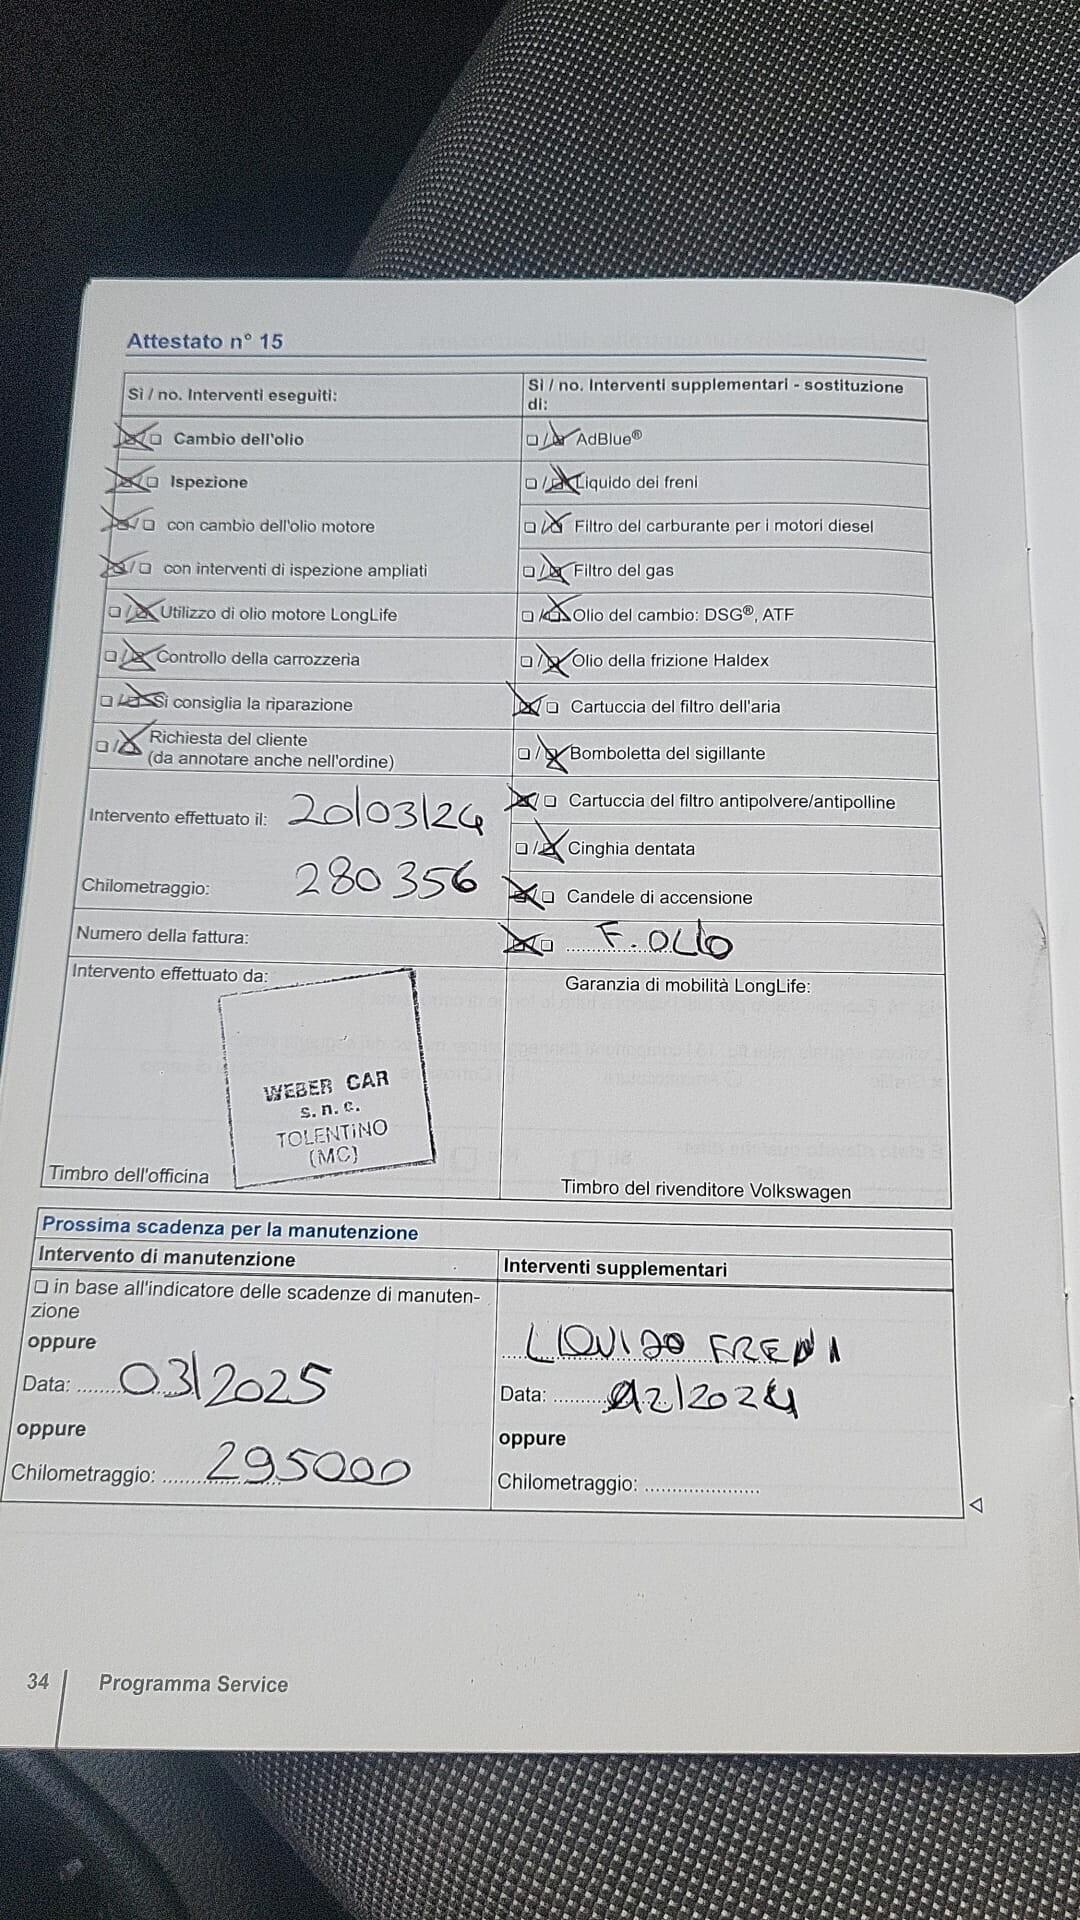 Attestato n° 15
Sì / no. Interventi eseguiti:
Cambio dell'olio
Ispezione
con cambio dell'olio motore
con interventi di ispezione ampliati
Utilizzo di olio motore LongLife
Controllo della carrozzeria
Si consiglia la riparazione
Richiesta del cliente
(da annotare anche nell'ordine)
Intervento effettuato il: 20/03/24
Chilometraggio: 280356
Numero della fattura:
Intervento effettuato da:
WEBER CAR
s.n.c.
TOLENTINO
(MC)
Timbro dell'officina
Sì / no. Interventi supplementari - sostituzione
di:
AdBlue®
Liquido dei freni
Filtro del carburante per i motori diesel
Filtro del gas
Olio del cambio: DSG®, ATF
Olio della frizione Haldex
Cartuccia del filtro dell'aria
Bomboletta del sigillante
Cartuccia del filtro antipolvere/antipolline
Cinghia dentata
Candele di accensione
F. OLIO
Garanzia di mobilità LongLife:
Timbro del rivenditore Volkswagen
Prossima scadenza per la manutenzione
Intervento di manutenzione
in base all'indicatore delle scadenze di manuten-
zione
oppure
Data: 03/2025
oppure
Chilometraggio: 295000
Interventi supplementari
LIQUIDO FRENI
Data: 02/2024
oppure
Chilometraggio:
34 Programma Service